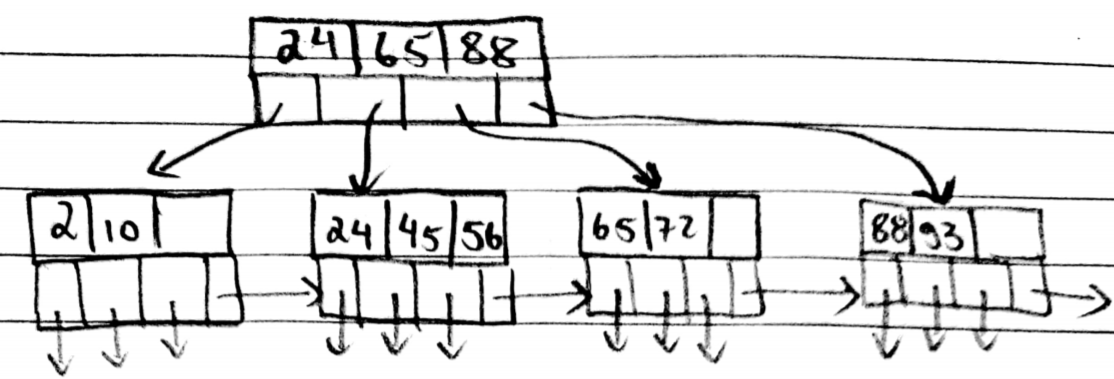 24 65 88
2 10 24 45 56 65 72 88 93